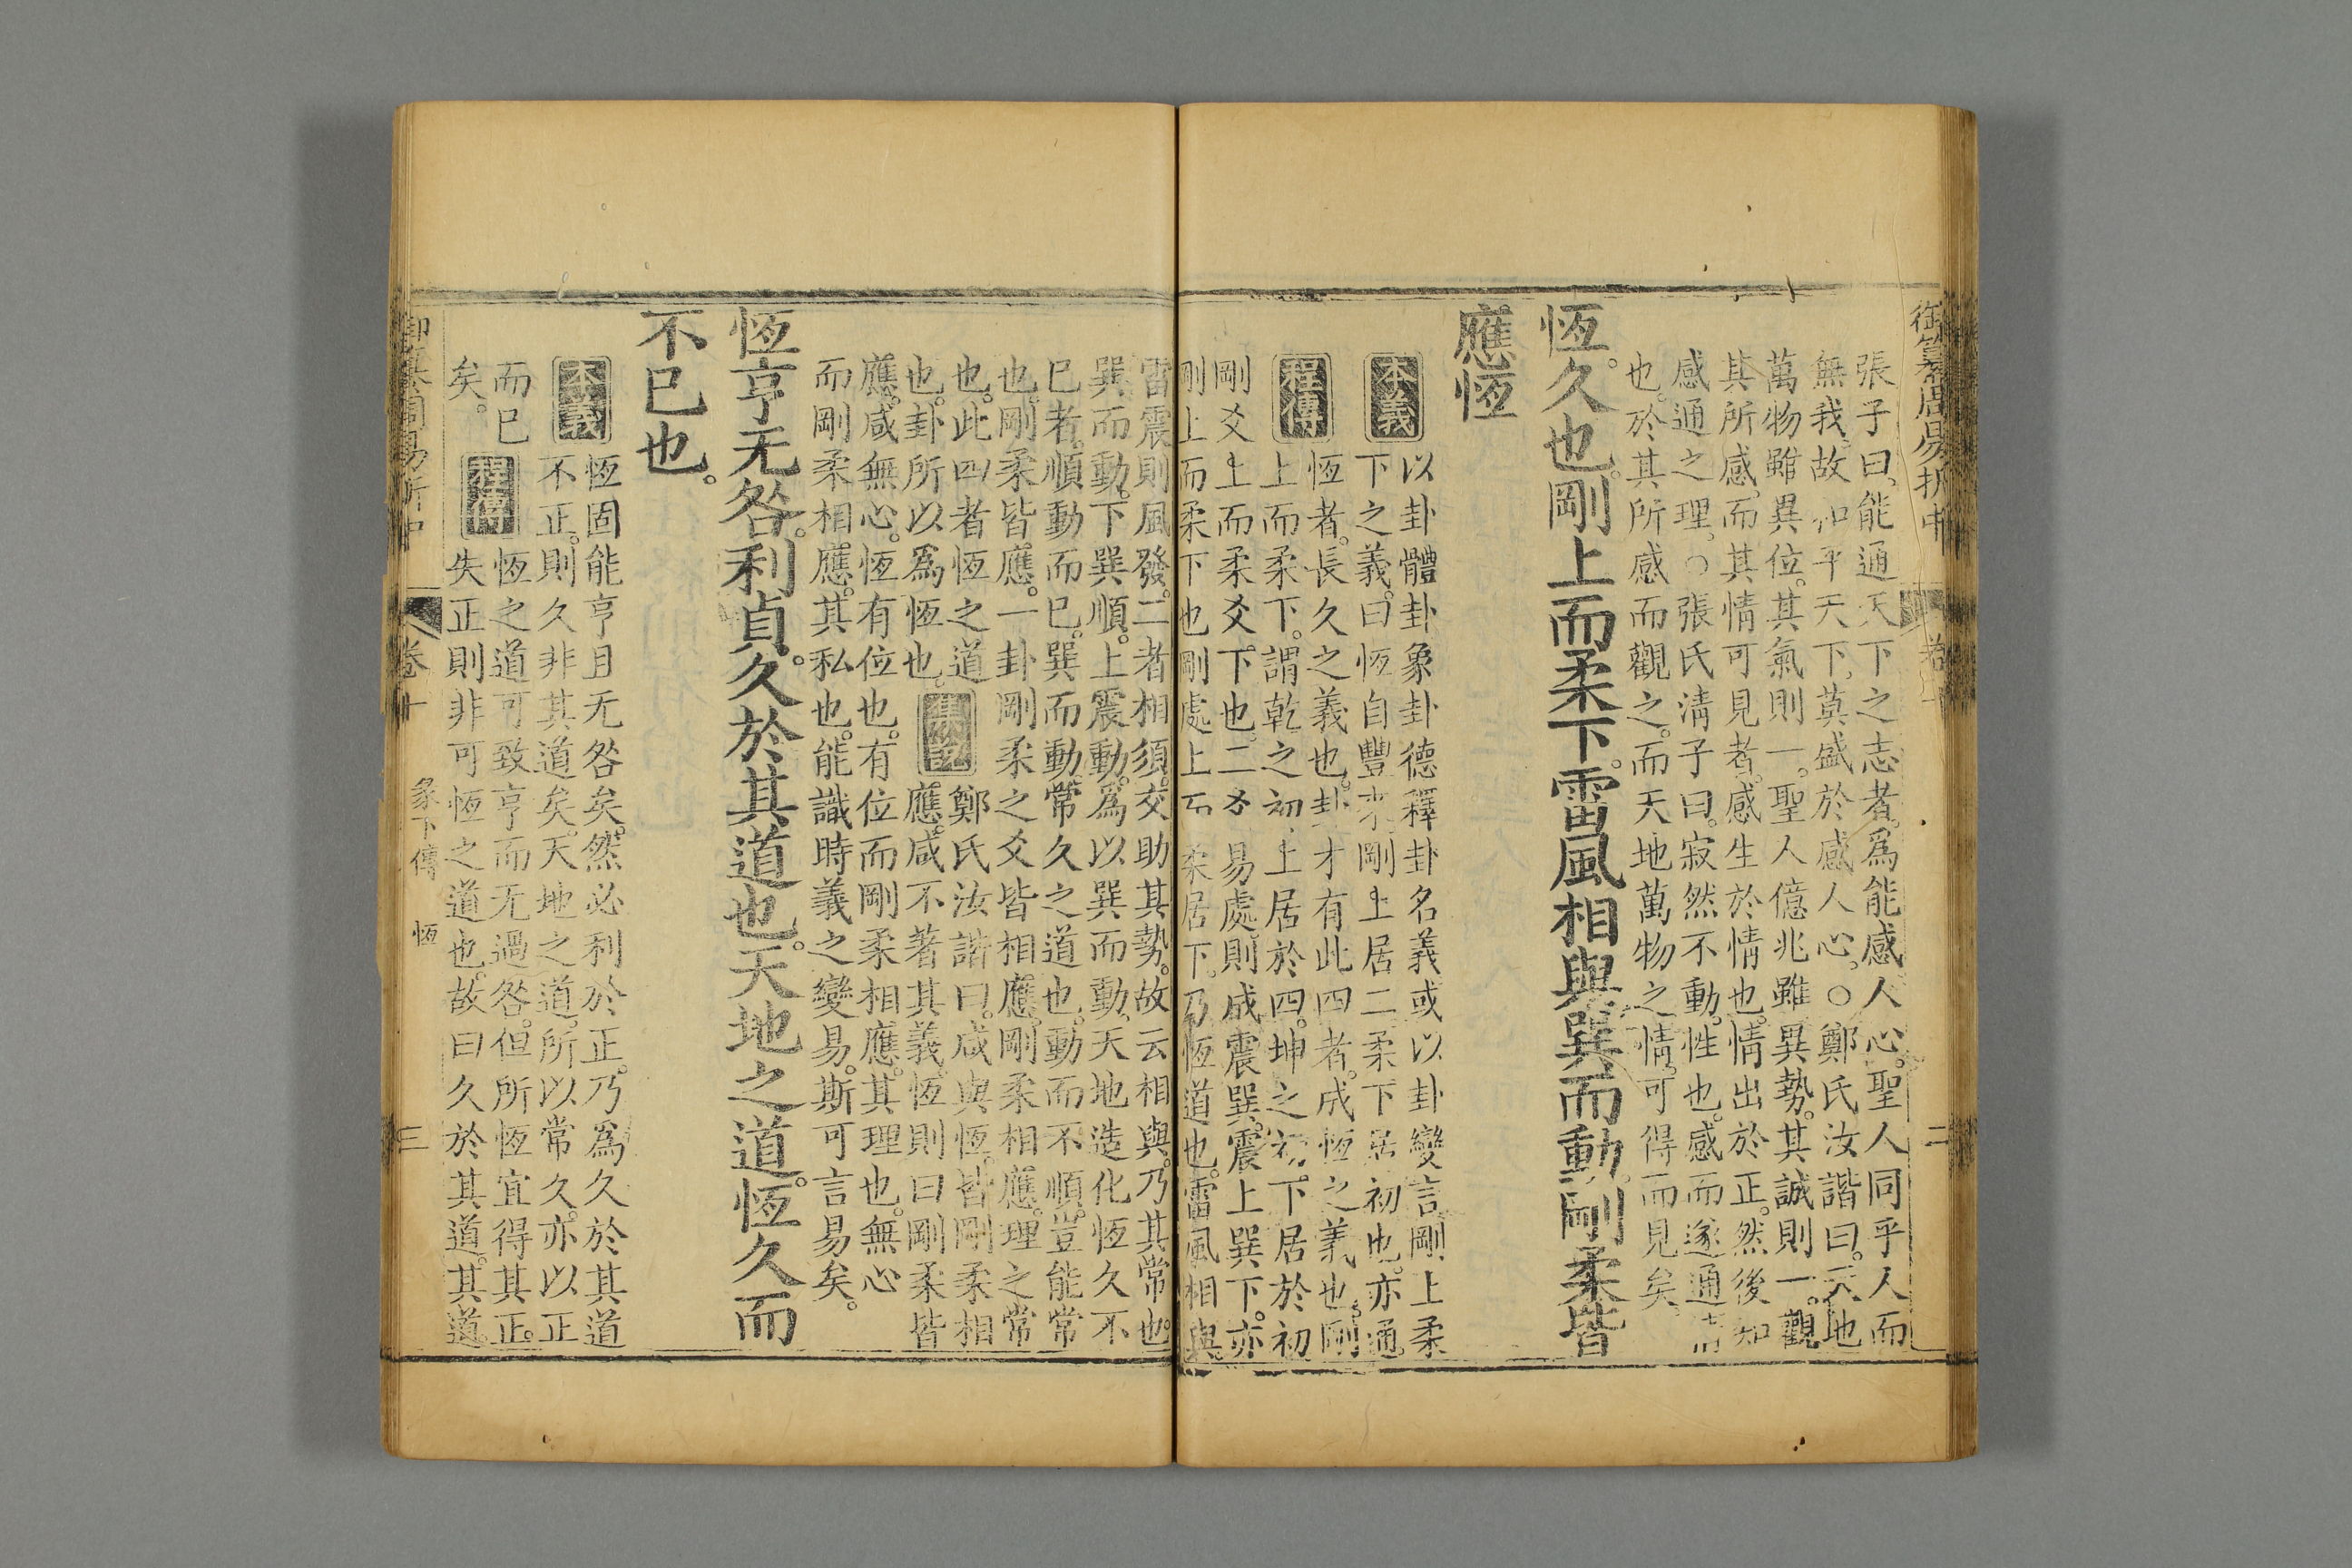 御纂周易折中
卷十
二
張子曰能通天下之志者為能感人心聖人同乎人而
無我故和平天下莫盛於感人心○鄭氏汝諧曰天地
萬物雖異位其氣則一聖人億兆雖異勢其誠則一觀
其所感而其情可見者感生於情也情出於正然後知
感通之理○張氏清子曰寂然不動性也感而遂通情
也於其所感而觀之而天地萬物之情可得而見矣
恆。久也剛上而柔下。雷風相與巽而動。剛柔皆
應恆
本義 以卦體卦象卦德釋卦名義或以卦變言剛上柔
下之義。曰恆自豐來剛上居二柔下居初也。亦通
程傳 恆者。長久之義也。卦才有此四者。成恆之義也。剛
上而柔下。謂乾之初上居於四。坤之初下居於初
剛爻上而柔爻下也。二爻易處。則成震巽。震上巽下。亦
剛上而柔下也剛處上而柔居下。乃恆道也。雷風相與。
雷震則風發。二者相須。交助其勢。故云相與。乃其常也。
巽而動。下巽順。上震動。為以巽而動。天地造化恆久不
已者。順動而已。巽而動。常久之道也。動而不順。豈能常
也。剛柔皆應。一卦剛柔之爻皆相應。剛柔相應。理之常
也。此四者恆之道
也。卦所以爲恆也。 集說 鄭氏汝諧曰。咸與恆。皆剛柔相
應。咸不著其義。恆則曰剛柔皆
應。咸無心。恆有位也。有位而剛柔相應。其理也。無心
而剛柔相應。其私也。能識時義之變易。斯可言易矣。
恆亨无咎。利貞。久於其道也。天地之道。恆久而
不已也。
本義 恆固能亨且无咎矣。然必利於正。乃爲久於其道
不正。則久非其道矣。天地之道。所以常久。亦以正
而已
矣。 程傳 恆之道可致亨而无過咎。但所恆宜得其正。
失正則非可恆之道也。故曰久於其道。其道。
御纂周易折中
卷十
彖下傳 恆
三